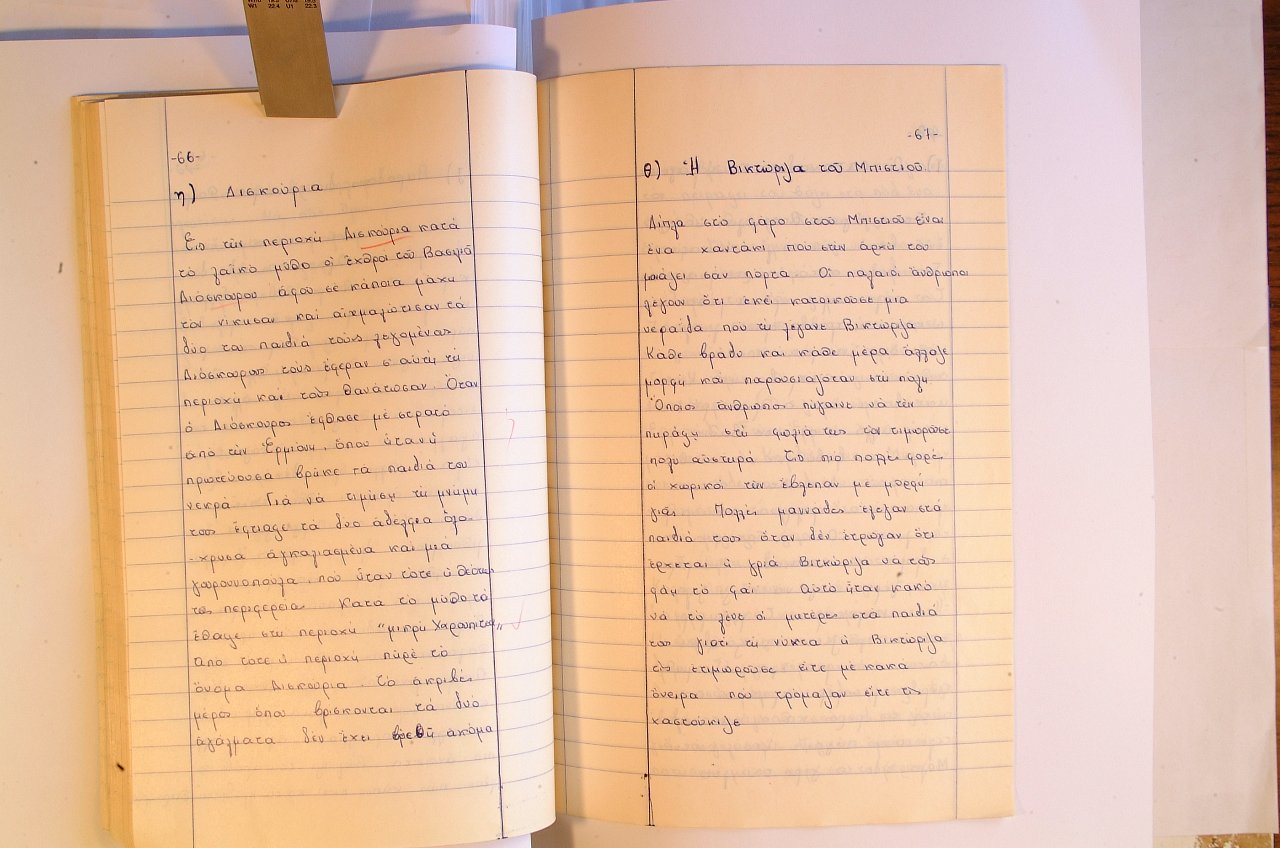 -66-
η) Δισκούρια
Εις τὴν περιοχὴ Δισκούρια κατά
τὸ λαϊκό μῦθο οἱ ἐχθροί τοῦ Βασιλιᾶ
Διόσκουρου ἀφοῦ σε κάποια μάχη
τον νικησαν καί αἰχμαλώτισαν τά
δύο του παιδιά τούς λεγομένους
Διόσκουρους τούς ἔφεραν σ' αὐτή τή
περιοχή καί τούς θανάτωσαν. Ὅταν
ὁ Διόσκουρος ἔφθασε μέ στρατό
ἀπό τήν Ἑρμιόνη, ὅπου ἦταν ἡ
πρωτεύουσα βρῆκε τα παιδιά του
νεκρά. Γιά νά τιμήση τή μνήμη
τους ἔφτιαξε τά δυο ἀδέλφια ὁλό-
-χρυσα ἀγκαλιασμένα και μιά
γουρουνοπούλα, που ἦταν τότε ἡ θεότης
της περιφέρειας. Κατά τό μῦθο τά
ἔθαψε στη περιοχή "μικρή Χαρουπιτού"
Απο τοτε ἡ περιοχή πῆρε τό
ὄνομα Δισκούρια. Τό ἀκριβές
μέρος ὅπου βρίσκονται τά δυό
ἀγάλματα δέν ἔχει βρεθῆ ἀκόμα
-67-
θ) Ἡ Βικτώριζα τοῦ Μπιστιοῦ.
Δίπλα στό φάρο στοῦ Μπιστιοῦ εἶναι
ἕνα χαντάκι πού στήν ἀρχή του
μοιάζει σάν πόρτα. Οἱ παλαιοί ἄνθρωποι
λέγουν ὅτι ἐκεῖ κατοικοῦσε μία
νεράϊδα που τή λέγανε Βικτώριζα
Καθε βράδυ και κάθε μέρα ἄλλαζε
μορφή καί παρουσιαζόταν στή πόλη
Ὅποιος ἄνθρωπος πήγαινε νά τήν
πειράξη στή φωλιά της τον τιμωροῦσε
πολύ αὐστηρά. Τις πιο πολλές φορές
οἱ χωρικοί τήν ἔβλεπαν με μορφή
γιάς. Πολλές μαννάδες ἔλεγαν στά
παιδιά τους ὅταν δέν ἔτρωγαν ὅτι
ἔρχεται ἡ γριά Βικτώριζα να τούς
φάη τό φαΐ. Αὐτό ἦταν κακό
νά τό λένε οἱ μητέρες στά παιδιά
τους γιατί τή νύκτα ἡ Βικτώριζα
τίς ἐτιμωροῦσε εἴτε μέ κακά
ὄνειρα πού τρόμαζαν εἴτε τίς
χαστούκιζε